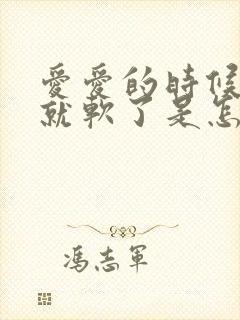 愛愛的時候
就軟了是怎
馮志軍